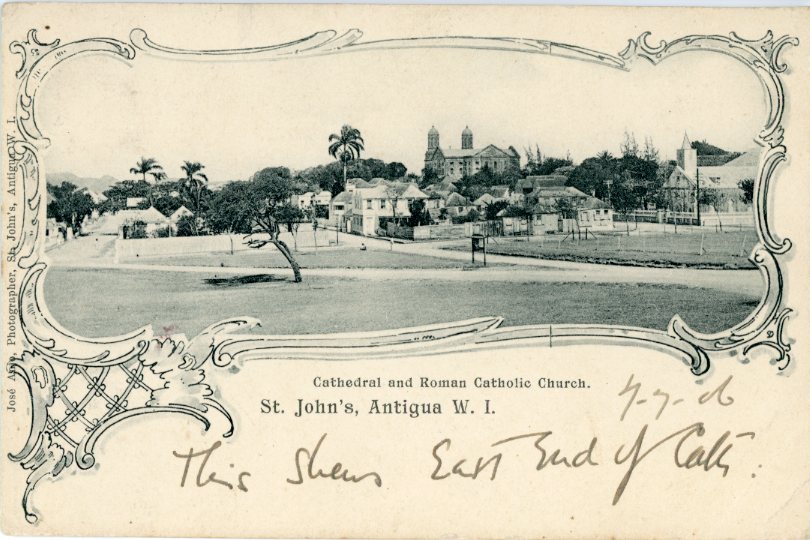 José Anjo, Photographer, St. John's, Antigua W. I.
Cathedral and Roman Catholic Church.
St. John's, Antigua W. I.
4-7-06
This shews East End of Cath.